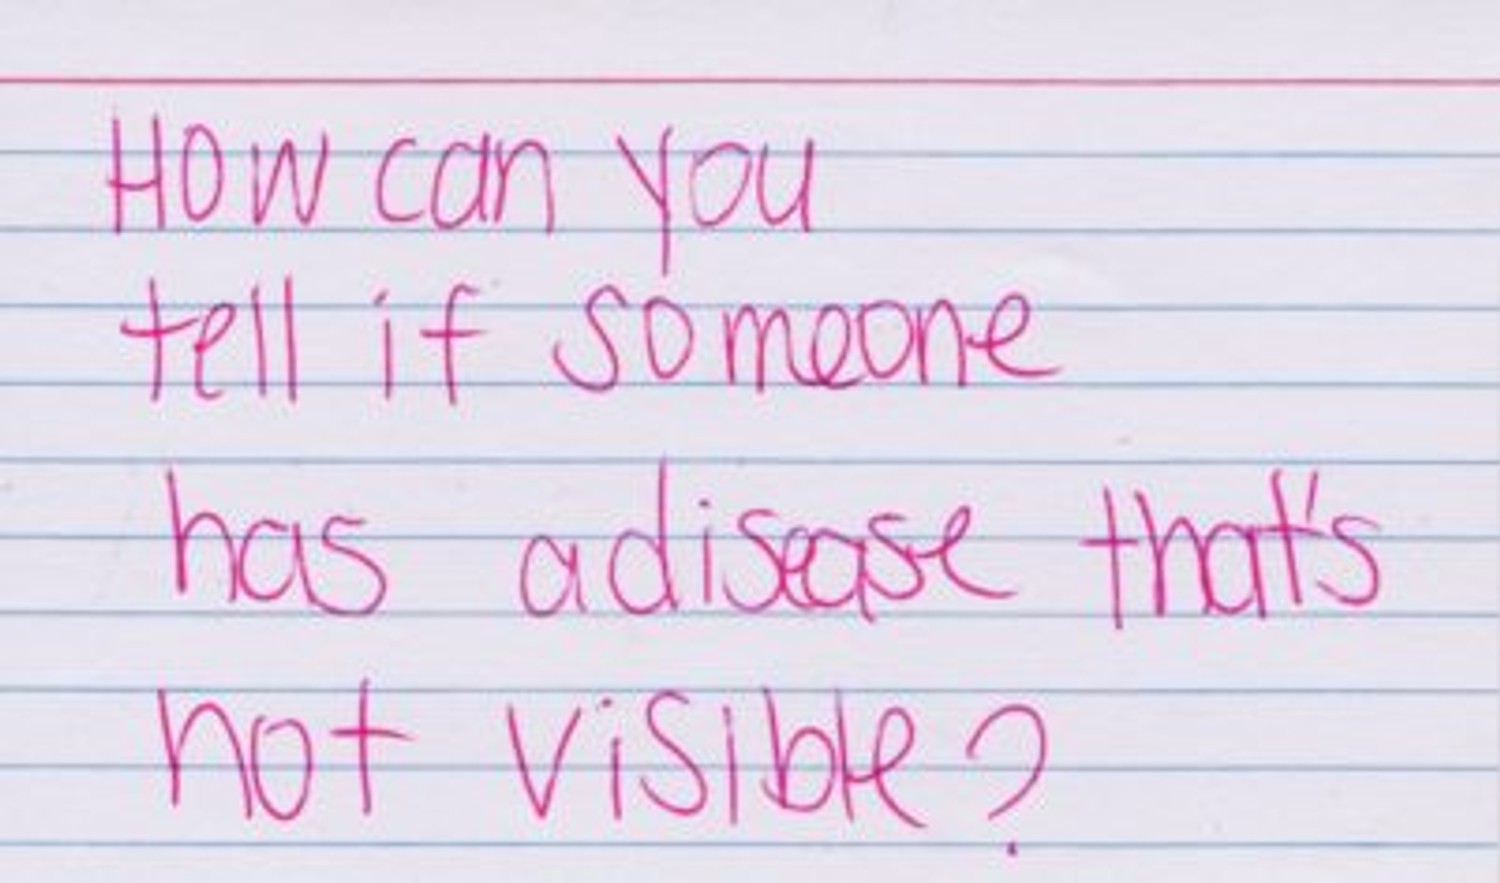 How can you
tell if someone
has a disease that's
not visible?